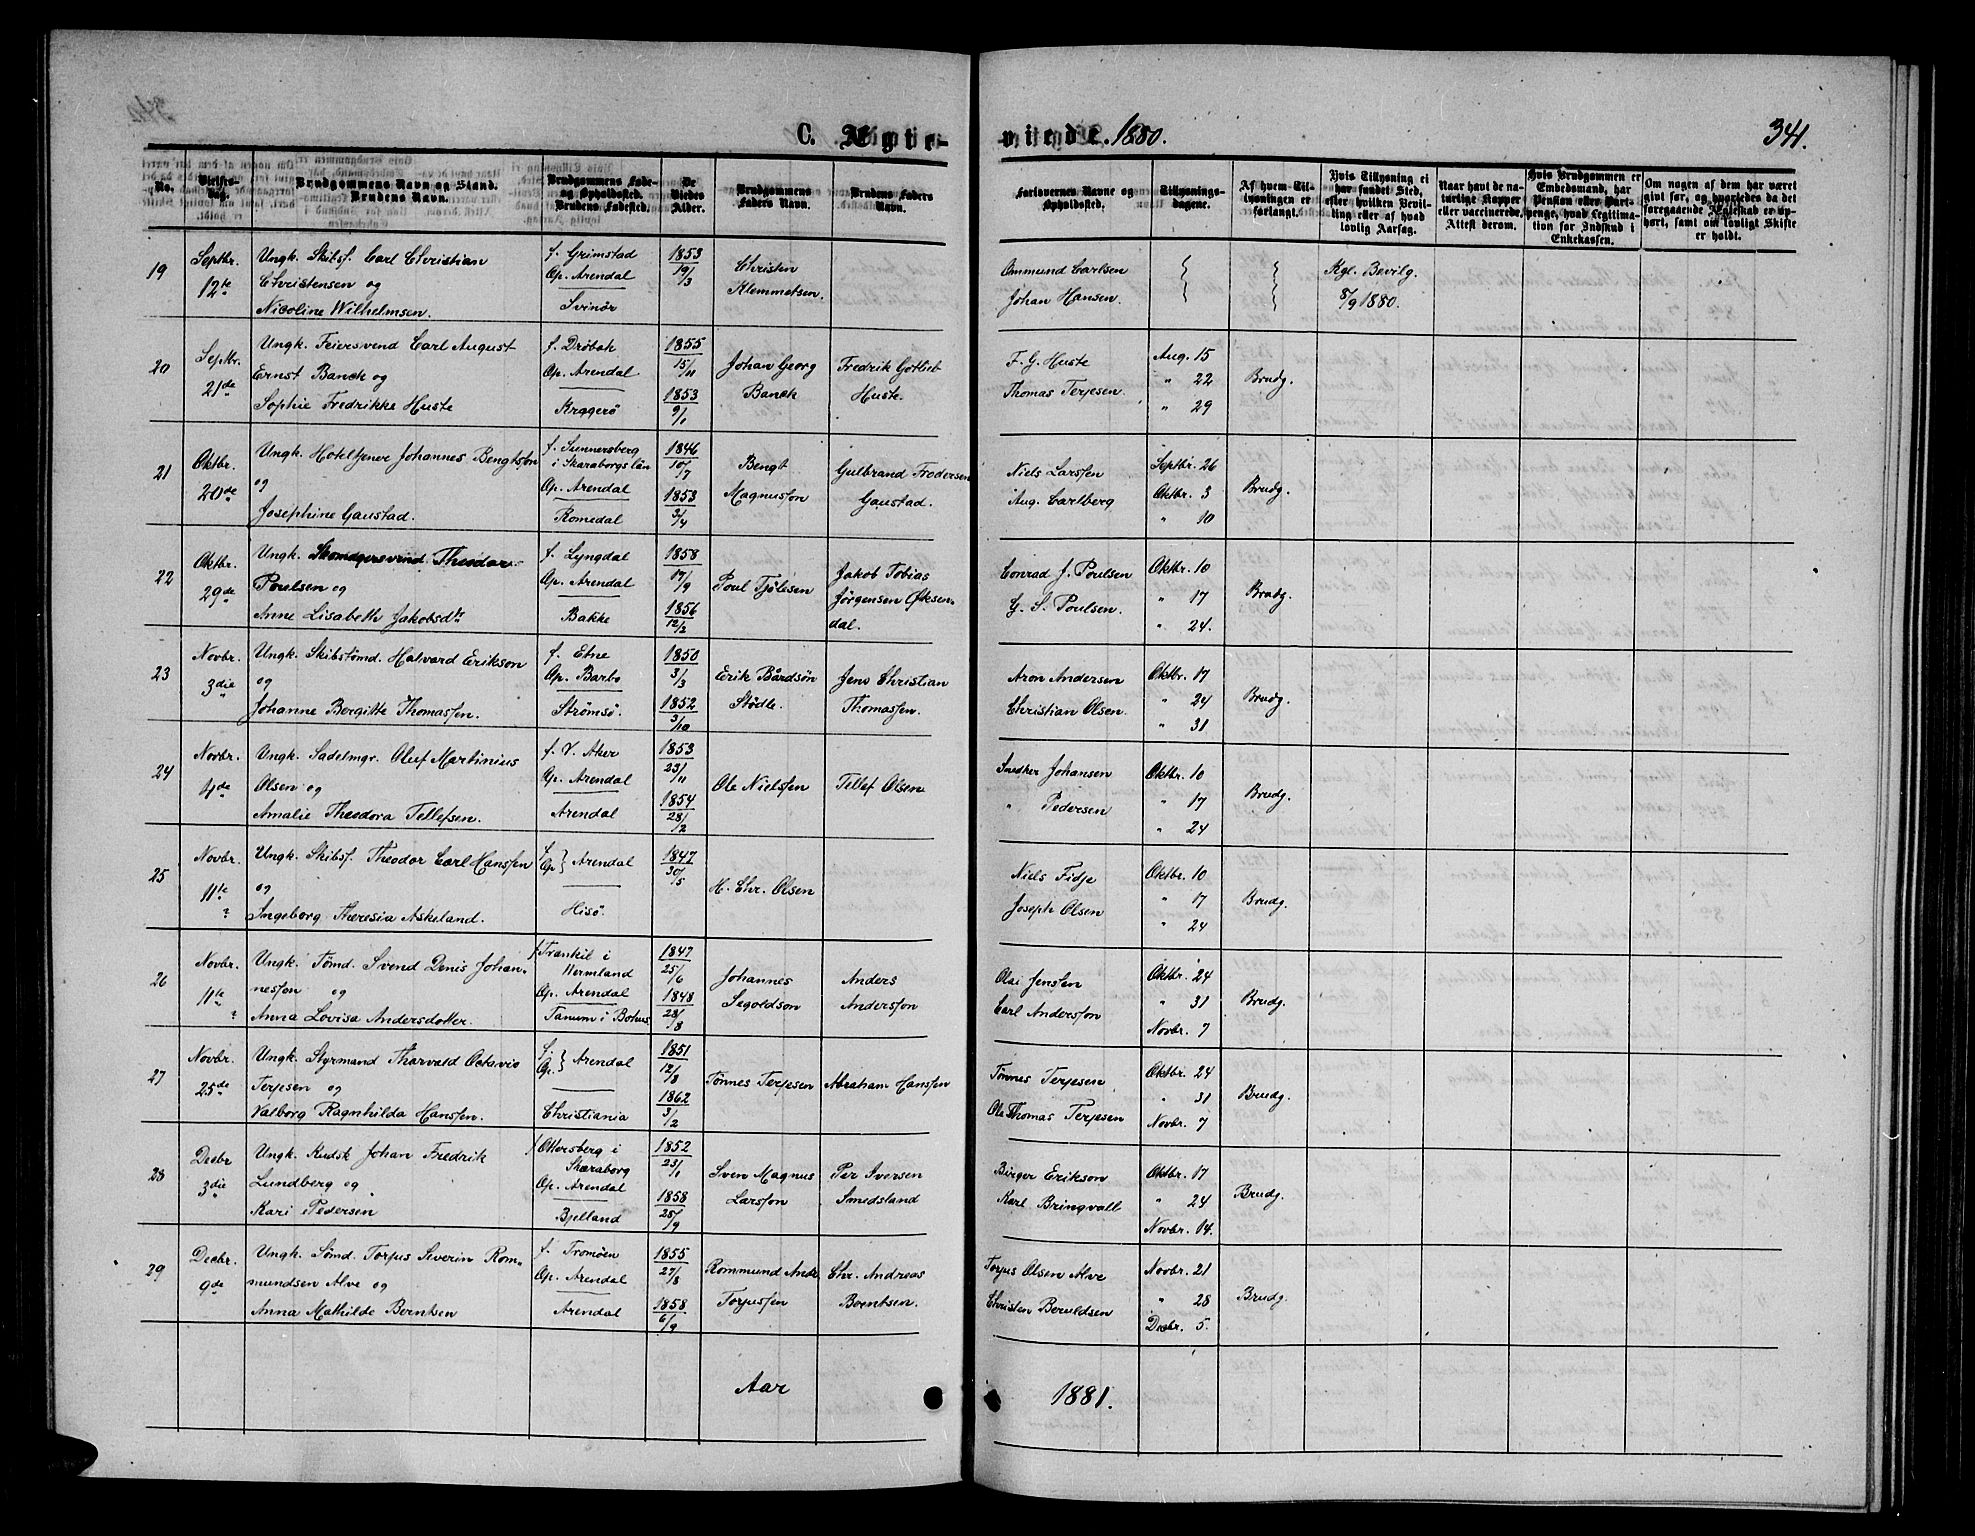 C. Ægteviede. 1880. 341.
No. | Vielses-Dag. | Brudgommens Navn og Stand. Brudens Navn. | Brudgommens Føde- og Opholdssted. Brudens Fødested. | De Viedes Alder. | Brudgommens Faders Navn. | Brudens Faders Navn. | Forlovernes Navne og Opholdssted. | Tillysnings-dagene. | Af hvem Tillysningen er forlangt. | Hvis Tillysning ei har fundet Sted, efter hvilken Bevilling eller af hvad lovlig Aarsag. | Naar havt de naturlige Kopper eller vaccinerede. Attest derom. | Hvis Brudgommen er Embedsmand, har Pension eller Vartpenge, hvad Legitimation for Indskud i Enkekassen. | Om nogen af dem har været givt før, og hvorledes da det foregaaende Ægteskab er ophørt, samt om lovligt Skifte er holdt.
19 | Septbr. 12te | Ungk. Skibsf. Carl Christian Christensen og Nicoline Wilhelmsen. | f. Grimstad Op. Arendal Svinör | 1853 19/3 | Christen Klemmetsen. | | Ommund Carlsen Johan Hansen. | | | Kgl. Bevilg. 8/9 1880.
20 | Septbr. 21de | Ungk. Feiersvend Carl August Ernst Banck og Sophie Fredrikke Huste | f. Dröbak Op. Arendal Krggerö | 1855 15/11 1853 9/1 | Johan Georg Banck | Fredrik Gotlieb Huste. | F. G. Huste Thomas Terjesen. | Aug. 15 " 22 " 29 | Brudg.
21 | Oktbr. 20de | Ungk. Hoteltjener Johannes Bengtson og Josephine Gaustad. | f. Sunnersberg i Skaraborgs län Op. Arendal Romedal | 1846 10/7 1853 3/4 | Bengt Magnusson | Gulbrand Frodersen Gaustad. | Niels Larssen Aug. Carlberg | Septbr. 26 Oktbr. 3 " 10 | Brudg.
22 | Oktbr. 29de | Ungk. Skomagersvend Theodor Poulsen og Anne Lisabeth Jakobsdtr | f. Lyngdal Op. Arendal Bakke | 1858 17/9 1856 12/2 | Poul Tjölesen | Jakob Tobias Jörgensen Øksendal. | Conrad J. Poulsen G. S. Poulsen. | Oktbr. 10 " 17 " 24. | Brudg.
23 | Novbr. 3die | Ungk. Skibstömd. Halvard Erikson og Johanne Bergitte Thomassen. | f. Etne Op. Barbo Strömsö. | 1850 3/3 1852 3/10 | Erik Bårdsön Stödle. | Jens Christian Thomassen. | Aron Andersen Christian Olsen. | Oktbr. 17 " 24 " 31 | Brudg.
24 | Novbr. 4de | Ungk. Sadelmgr. Oluf Martinius Olsen og Amalie Theodora Tellefsen. | f. V. Aker Op. Arendal Arendal | 1853 23/11 1854 28/2 | Ole Nielssen | Tellef Olsen | Snedker Johansen " Pedersen | Oktbr. 10 " 17 " 24 | Brudg.
25 | Novbr. 11te | Ungk. Skibsf. Theodor Carl Hanssen og Ingeborg Theresia Askeland. | f. Op. Arendal Hisö. | 1847 30/5 | H. Chr. Olsen | | Niels Fidje Joseph Olsen | Oktbr. 10 " 17 " 24 | Brudg.
26 | Novbr. 11te | Ungk. Tömd. Svend Denis Johannesson og Anna Lovisa Andersdotter. | f. Trankil i Wermland Op. Arendal Tanum i Bohus | 1847 25/6 1848 28/8 | Johannes Segoldson | Anders Andersson | Olai Jensen Carl Andersson | Oktbr. 24 " 31 Novbr. 7 | Brudg.
27 | Novbr. 25de | Ungk. Styrmand Thorvald Octavio Terjesen og Valborg Ragnhilda Hanssen. | f. Op. Arendal Christiania | 1851 12/8 1862 3/2 | Tönnes Terjesen | Abraham Hanssen | Tönnes Terjesen Ole Thomas Terjesen | Oktbr. 24 " 31 Novbr. 7 | Brudg.
28 | Decbr 3die | Ungk. Kudsk Johan Fredrik Lundberg og Kari Pedersen | f. Ottersberg i Skaraborg Op. Arendal Bjelland | 1852 23/1 1858 25/9 | Sven Magnus Larsson | Per Iversen Smedsland | Birger Erikson Karl Bringvall | Oktbr. 17 " 24 Novbr. 14. | Brudg.
29 | Decbr. 9de | Ungk. Sömd. Torjus Severin Rommundsen Alve og Anna Mathilde Berntsen | f. Tromöen Op. Arendal Arendal | 1855 27/8 1858 6/9 | Rommund Andr. Torjussen | Chr. Andreas Berntsen. | Torjus Olsen Alve Christen Beruldsen | Novbr. 21 " 28 Decbr. 5. | Brudg.
Aar 1881.